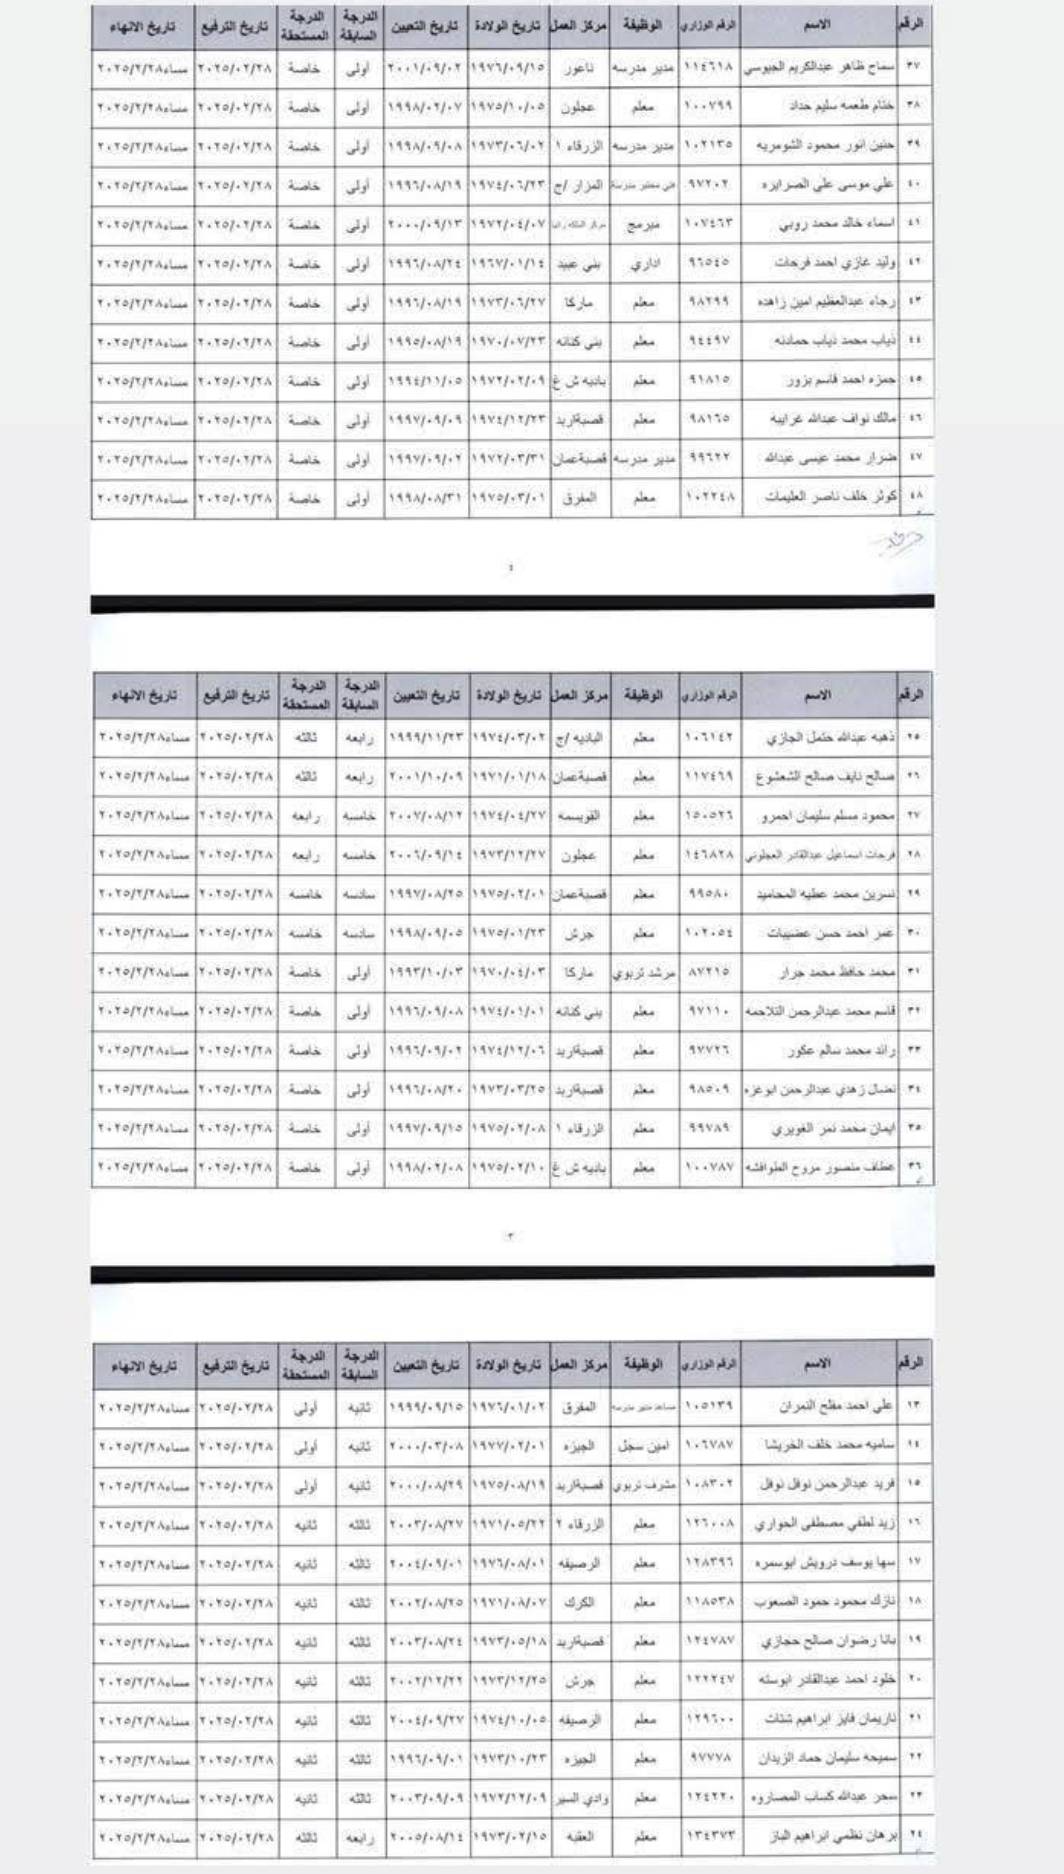 الرقم الاسم الرقم الوزاري الوظيفة مركز العمل تاريخ الولادة تاريخ التعيين الدرجة السابقة الدرجة المستحقة تاريخ الترفيع تاريخ الانهاء
٣٧ سماح ظاهر عبدالكريم الجيوسي ١١٤٦١٨ مدير مدرسه ناعور ١٩٧٦/٠٩/١٥ ٢٠٠١/٠٩/٠٢ أولى خاصة ٢٠٢٥/٠٢/٢٨ مساء٢٠٢٥/٢/٢٨
٣٨ ختام طعمه سليم حداد ١٠٠٧٩٩ معلم عجلون ١٩٧٥/١٠/٠٥ ١٩٩٨/٠٢/٠٧ أولى خاصة ٢٠٢٥/٠٢/٢٨ مساء٢٠٢٥/٢/٢٨
٣٩ حنين انور محمود الشومريه ١٠٢١٣٥ مدير مدرسه الزرقاء ١ ١٩٧٣/٠٦/٠٢ ١٩٩٨/٠٩/٠٨ أولى خاصة ٢٠٢٥/٠٢/٢٨ مساء٢٠٢٥/٢/٢٨
٤٠ علي موسى علي الصرايره ٩٧٢٠٢ المزار /ج ١٩٧٤/٠٦/٢٣ ١٩٩٦/٠٨/١٩ أولى خاصة ٢٠٢٥/٠٢/٢٨ مساء٢٠٢٥/٢/٢٨
٤١ اسماء خالد محمد روبي ١٠٧٤٦٣ مبرمج ١٩٧٢/٠٤/٠٧ ٢٠٠٠/٠٩/١٣ أولى خاصة ٢٠٢٥/٠٢/٢٨ مساء٢٠٢٥/٢/٢٨
٤٢ وليد غازي احمد فرحات ٩٦٥٤٥ اداري بني عبيد ١٩٦٧/٠١/١٤ ١٩٩٦/٠٨/٢٤ أولى خاصة ٢٠٢٥/٠٢/٢٨ مساء٢٠٢٥/٢/٢٨
٤٣ رجاء عبدالعظيم امين زاهده ٩٨٢٩٩ معلم ماركا ١٩٧٣/٠٦/٢٧ ١٩٩٦/٠٨/١٩ أولى خاصة ٢٠٢٥/٠٢/٢٨ مساء٢٠٢٥/٢/٢٨
٤٤ ذياب محمد ذياب حمادنه ٩٤٤٩٧ معلم بني كنانه ١٩٧٠/٠٧/٢٣ ١٩٩٥/٠٨/١٩ أولى خاصة ٢٠٢٥/٠٢/٢٨ مساء٢٠٢٥/٢/٢٨
٤٥ حمزه احمد قاسم بزور ٩١٨١٥ معلم باديه ش غ ١٩٧٢/٠٢/٠٩ ١٩٩٤/١١/٠٥ أولى خاصة ٢٠٢٥/٠٢/٢٨ مساء٢٠٢٥/٢/٢٨
٤٦ مالك نواف عبدالله غرايبه ٩٨١٦٥ معلم قصبةاربد ١٩٧٤/١٢/٢٣ ١٩٩٧/٠٩/٠٩ أولى خاصة ٢٠٢٥/٠٢/٢٨ مساء٢٠٢٥/٢/٢٨
٤٧ ضرار محمد عيسى عبدالله ٩٩٦٢٢ مدير مدرسه قصبةعمان ١٩٧٢/٠٣/٣١ ١٩٩٧/٠٩/٠٢ أولى خاصة ٢٠٢٥/٠٢/٢٨ مساء٢٠٢٥/٢/٢٨
٤٨ كوثر خلف ناصر العليمات ١٠٢٢٤٨ معلم المفرق ١٩٧٥/٠٣/٠١ ١٩٩٨/٠٨/٣١ أولى خاصة ٢٠٢٥/٠٢/٢٨ مساء٢٠٢٥/٢/٢٨
٤
الرقم الاسم الرقم الوزاري الوظيفة مركز العمل تاريخ الولادة تاريخ التعيين الدرجة السابقة الدرجة المستحقة تاريخ الترفيع تاريخ الانهاء
٢٥ ذهبه عبدالله حتمل الجازي ١٠٦١٤٢ معلم الباديه /ج ١٩٧٤/٠٣/٠٢ ١٩٩٩/١١/٢٣ رابعه ثالثه ٢٠٢٥/٠٢/٢٨ مساء٢٠٢٥/٢/٢٨
٢٦ صالح نايف صالح الشعشوع ١١٧٤٦٩ معلم قصبةعمان ١٩٧١/٠١/١٨ ٢٠٠١/١٠/٠٩ رابعه ثالثه ٢٠٢٥/٠٢/٢٨ مساء٢٠٢٥/٢/٢٨
٢٧ محمود مسلم سليمان احمرو ١٥٠٥٢٦ معلم القويسمه ١٩٧٤/٠٤/٢٧ ٢٠٠٧/٠٨/١٢ خامسه رابعه ٢٠٢٥/٠٢/٢٨ مساء٢٠٢٥/٢/٢٨
٢٨ فرحات اسماعيل عبدالقادر العجلوني ١٤٦٨٢٨ معلم عجلون ١٩٧٣/١٢/٢٧ ٢٠٠٦/٠٩/١٤ خامسه رابعه ٢٠٢٥/٠٢/٢٨ مساء٢٠٢٥/٢/٢٨
٢٩ نسرين محمد عطيه المحاميد ٩٩٥٨٠ معلم قصبةعمان ١٩٧٥/٠٢/٠١ ١٩٩٧/٠٨/٢٥ سادسه خامسه ٢٠٢٥/٠٢/٢٨ مساء٢٠٢٥/٢/٢٨
٣٠ عمر احمد حسن عضيبات ١٠٢٠٥٤ معلم جرش ١٩٧٥/٠١/٢٣ ١٩٩٨/٠٩/٠٥ سادسه خامسه ٢٠٢٥/٠٢/٢٨ مساء٢٠٢٥/٢/٢٨
٣١ محمد حافظ محمد جرار ٨٧٢١٥ مرشد تربوي ماركا ١٩٧٠/٠٤/٠٣ ١٩٩٣/١٠/٠٣ أولى خاصة ٢٠٢٥/٠٢/٢٨ مساء٢٠٢٥/٢/٢٨
٣٢ قاسم محمد عبدالرحمن التلاحمه ٩٧١١٠ معلم بني كنانه ١٩٧٤/٠١/٠١ ١٩٩٦/٠٩/٠٨ أولى خاصة ٢٠٢٥/٠٢/٢٨ مساء٢٠٢٥/٢/٢٨
٣٣ رائد محمد سالم عكور ٩٧٧٢٦ معلم قصبةاربد ١٩٧٤/١٢/٠٦ ١٩٩٦/٠٩/٠٢ أولى خاصة ٢٠٢٥/٠٢/٢٨ مساء٢٠٢٥/٢/٢٨
٣٤ نضال زهدي عبدالرحمن ابوعزه ٩٨٥٠٩ معلم قصبةاربد ١٩٧٣/٠٣/٢٥ ١٩٩٦/٠٨/٢٠ أولى خاصة ٢٠٢٥/٠٢/٢٨ مساء٢٠٢٥/٢/٢٨
٣٥ ايمان محمد نمر الغويري ٩٩٧٨٩ معلم الزرقاء ١ ١٩٧٥/٠٢/٠٨ ١٩٩٧/٠٩/١٥ أولى خاصة ٢٠٢٥/٠٢/٢٨ مساء٢٠٢٥/٢/٢٨
٣٦ عطاف منصور مروح الطوافشه ١٠٠٧٨٧ معلم باديه ش غ ١٩٧٥/٠٢/١٠ ١٩٩٨/٠٢/٠٨ أولى خاصة ٢٠٢٥/٠٢/٢٨ مساء٢٠٢٥/٢/٢٨
٣
الرقم الاسم الرقم الوزاري الوظيفة مركز العمل تاريخ الولادة تاريخ التعيين الدرجة السابقة الدرجة المستحقة تاريخ الترفيع تاريخ الانهاء
١٣ علي احمد مفلح النمران ١٠٥١٣٩ مساعد مدير مدرسه المفرق ١٩٧٦/٠١/٠٢ ١٩٩٩/٠٩/١٥ ثانيه أولى ٢٠٢٥/٠٢/٢٨ مساء٢٠٢٥/٢/٢٨
١٤ ساميه محمد خلف الخريشا ١٠٦٧٨٧ امين سجل الجيزه ١٩٧٧/٠٢/٠١ ٢٠٠٠/٠٣/٠٨ ثانيه أولى ٢٠٢٥/٠٢/٢٨ مساء٢٠٢٥/٢/٢٨
١٥ فريد عبدالرحمن نوفل نوفل ١٠٨٣٠٢ مشرف تربوي قصبةاربد ١٩٧٥/٠٨/١٩ ٢٠٠٠/٠٨/٢٩ ثانيه أولى ٢٠٢٥/٠٢/٢٨ مساء٢٠٢٥/٢/٢٨
١٦ زيد لطفي مصطفى الحواري ١٢٦٠٠٨ معلم الزرقاء ٢ ١٩٧١/٠٥/٢٢ ٢٠٠٣/٠٨/٢٧ ثالثه ثانيه ٢٠٢٥/٠٢/٢٨ مساء٢٠٢٥/٢/٢٨
١٧ سها يوسف درويش ابوسمره ١٢٨٣٩٦ معلم الرصيفه ١٩٧٦/٠٨/٠١ ٢٠٠٤/٠٩/٠١ ثالثه ثانيه ٢٠٢٥/٠٢/٢٨ مساء٢٠٢٥/٢/٢٨
١٨ نازك محمود حمود الصعوب ١١٨٥٣٨ معلم الكرك ١٩٧١/٠٨/٠٧ ٢٠٠٢/٠٨/٢٥ ثالثه ثانيه ٢٠٢٥/٠٢/٢٨ مساء٢٠٢٥/٢/٢٨
١٩ بانا رضوان صالح حجازي ١٢٤٧٨٧ معلم قصبةاربد ١٩٧٣/٠٥/١٨ ٢٠٠٣/٠٨/٢٤ ثالثه ثانيه ٢٠٢٥/٠٢/٢٨ مساء٢٠٢٥/٢/٢٨
٢٠ خلود احمد عبدالقادر ابوسته ١٢٢٢٤٧ معلم جرش ١٩٧٣/١٢/٢٥ ٢٠٠٢/١٢/٢٢ ثالثه ثانيه ٢٠٢٥/٠٢/٢٨ مساء٢٠٢٥/٢/٢٨
٢١ ناريمان فايز ابراهيم شتات ١٢٩٦٠٠ معلم الرصيفه ١٩٧٤/١٠/٠٥ ٢٠٠٤/٠٩/٢٧ ثالثه ثانيه ٢٠٢٥/٠٢/٢٨ مساء٢٠٢٥/٢/٢٨
٢٢ سميحه سليمان حماد الزيدان ٩٧٧٧٨ معلم الجيزه ١٩٧٣/١٠/٢٣ ١٩٩٦/٠٩/٠١ ثالثه ثانيه ٢٠٢٥/٠٢/٢٨ مساء٢٠٢٥/٢/٢٨
٢٣ سحر عبدالله كساب المصاروه ١٢٤٢٢٠ معلم وادي السير ١٩٧٢/١٢/٠٩ ٢٠٠٣/٠٩/٠٩ ثالثه ثانيه ٢٠٢٥/٠٢/٢٨ مساء٢٠٢٥/٢/٢٨
٢٤ برهان نظمي ابراهيم الباز ١٣٤٣٧٣ معلم العقبه ١٩٧٣/٠٢/١٥ ٢٠٠٥/٠٨/١٤ رابعه ثالثه ٢٠٢٥/٠٢/٢٨ مساء٢٠٢٥/٢/٢٨